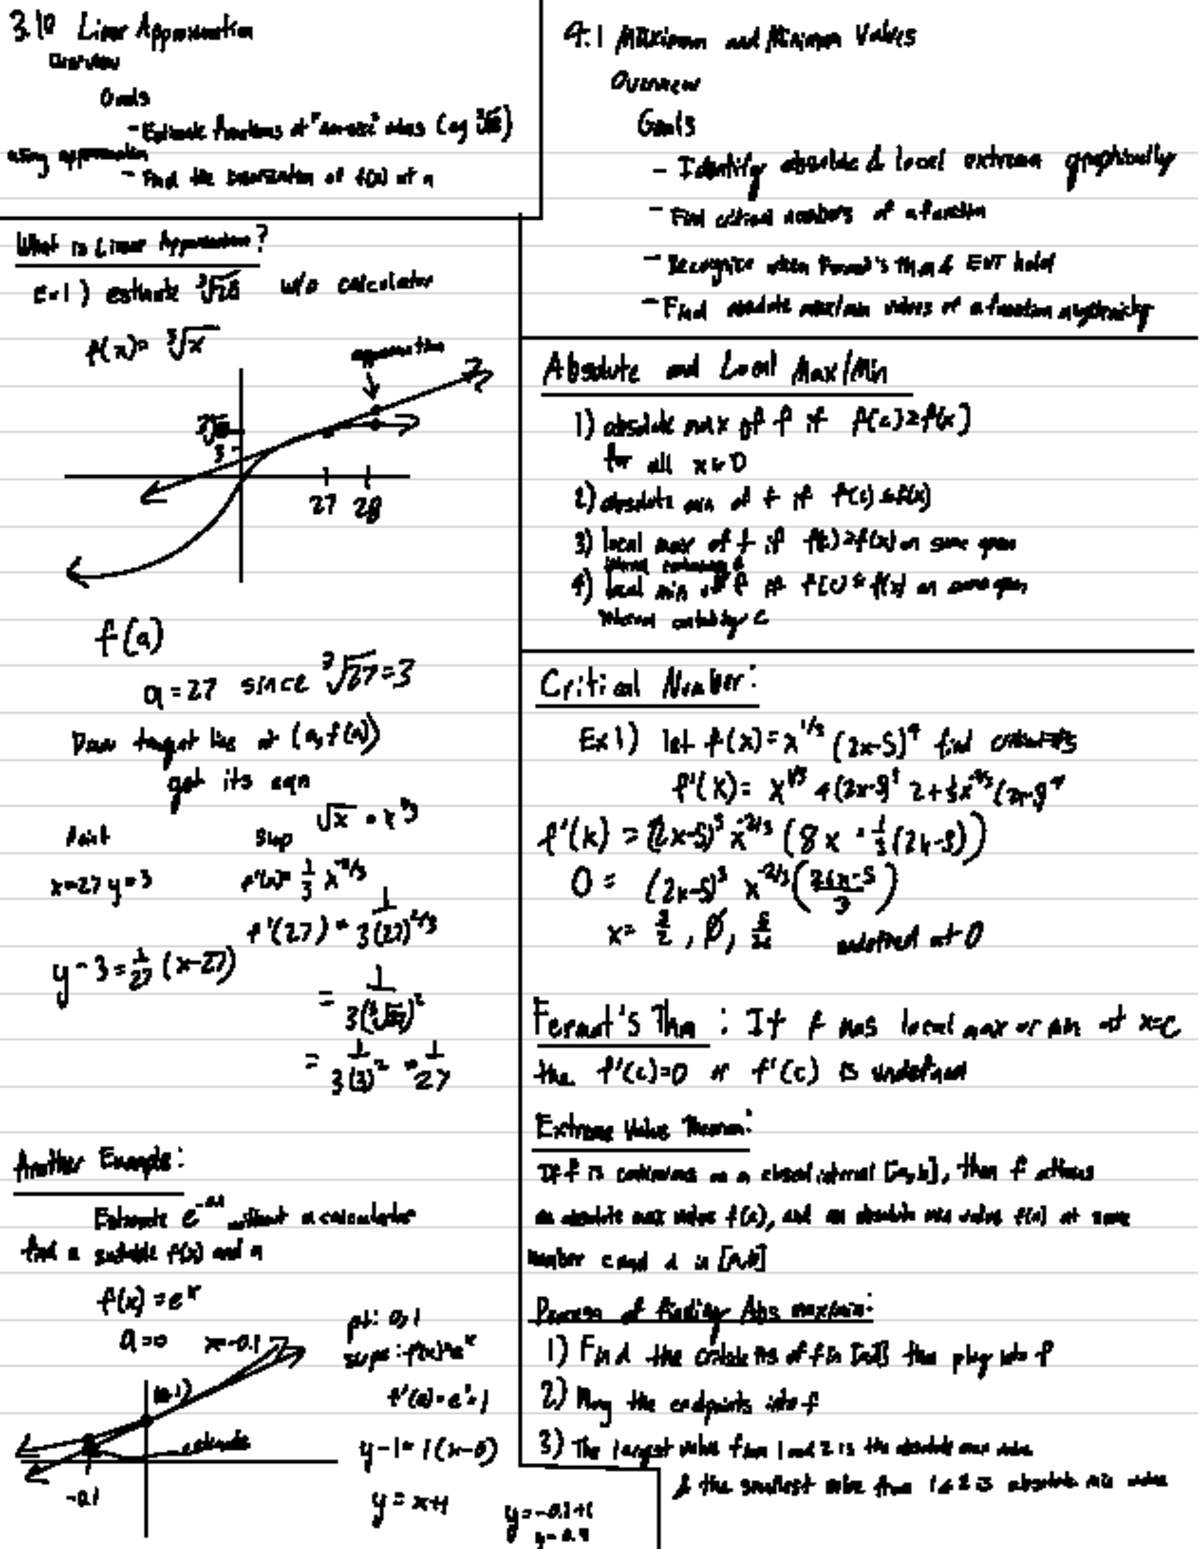 3.10 Linear Approximation
Overview
Goals
- Estimate functions at "non-nice" values (eg ∛28)
using approximation
- Find the linearization of f(x) at a
What is Linear Approximation?
Ex 1) estimate ∛28 w/o calculator
f(x) = ∛x
approximation
∛28
3
27 28
f(a)
a = 27 since ∛27 = 3
Draw tangent line at (a, f(a))
get its eqn
Point Slop
√x = x^1/3
x=27 y=3
f'(x) = 1/3 x^-2/3
f'(27) = 1/3(27)^2/3
y - 3 = 1/27 (x-27)
= 1/3(∛27)^2
= 1/3(3)^2 = 1/27
Another Example:
Estimate e^-0.1 without a calculator
find a suitable f(x) and a
f(x) = e^x
a=0 x=-0.1
(0,1)
estimate
-0.1
pt: 0,1
slope: f'(x)=e^x
f'(0) = e^0 = 1
y-1 = 1(x-0)
y = x+1
y = -0.1+1
y = 0.9
4.1 Maximum and Minimum Values
Overview
Goals
- Identify absolute & local extrema graphically
- Find critical numbers of a function
- Recognize when Fermat's Thm & EVT hold
- Find absolute max/min values of a function algebraically
Absolute and Local Max/Min
1) absolute max of f if f(c) ≥ f(x)
for all x in D
2) absolute min of f if f(c) ≤ f(x)
3) local max of f if f(c) ≥ f(x) on some open
interval containing c
4) local min of f if f(c) ≤ f(x) on some open
interval containing c
Critical Number:
Ex 1) let f(x) = x^1/3 (2x-5)^4 find
f'(x) = x^1/3 4(2x-5)^3 2 + 1/3 x^-2/3 (2x-5)^4
f'(x) = (2x-5)^3 x^-2/3 (8x + 1/3 (2x-5))
0 = (2x-5)^3 x^-2/3 (26x-5/3)
x = 5/2, 0, 5/26 undefined at 0
Fermat's Thm : If f has local max or min at x=c
the f'(c)=0 or f'(c) is undefined
Extreme Value Theorem:
If f is continuous on a closed interval [a,b], then f attains
an absolute max value f(c), and an absolute min value f(d) at some
number c and d in [a,b]
Process of finding Abs max/min:
1) Find the of f in [a,b] then plug into f
2) Plug the endpoints into f
3) The largest value from 1 and 2 is the absolute max value
& the smallest value from 1 & 2 is absolute min value